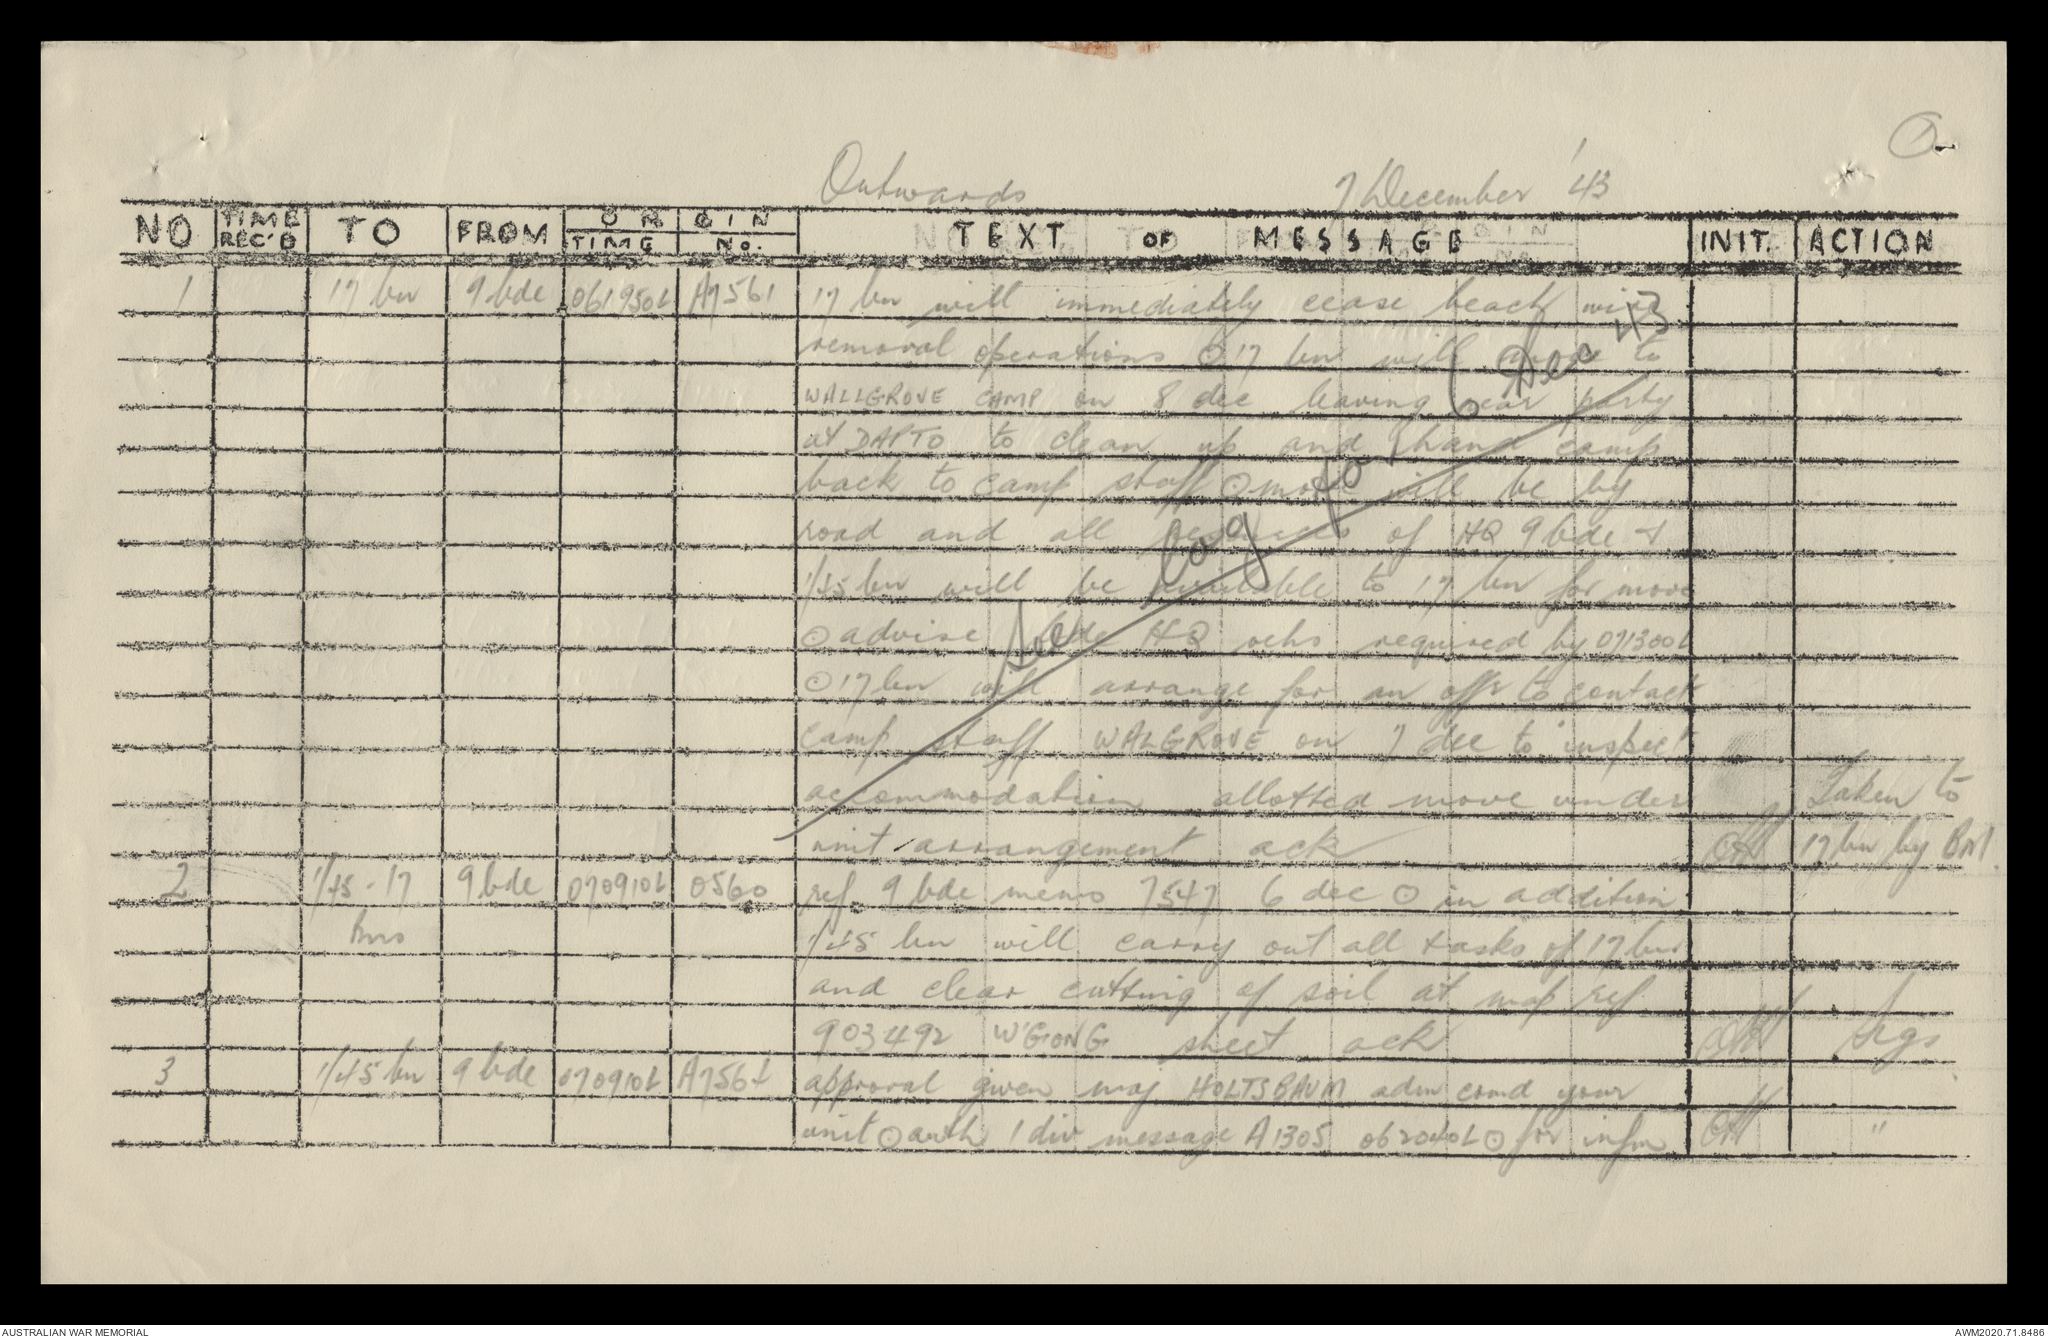 Outwards 7 December '43
NO TIME REC'D TO FROM ORGIN TIME No. TEXT OF MESSAGE INIT. ACTION
1 17 bn 9 bde 061950L A7561 17 bn will immediately cease beach wire
removal operations ⊙ 17 bn will move to
WALLGROVE CAMP on 8 dec leaving rear party
at DAPTO to clean up and hand camp
back to camp staff ⊙ move will be by
road and all resources of HQ 9 bde &
1/45 bn will be available to 17 bn for move
⊙ advise bde HQ vehs required by 071300L
⊙ 17 bn will arrange for an offr to contact
camp staff WALGROVE on 7 dec to inspect
accommodation allotted move under
unit arrangement ack Taken to 17 bn by BM
See log for 6 Dec 43
2 1/45 - 17 Bns 9 bde 070910L 0560 ref 9 bde memo 7547 6 dec ⊙ in addition
1/45 bn will carry out all tasks of 17 bn
and clear cutting of soil at map ref
903492 W'GONG sheet ack sigs
3 1/45 bn 9 bde 070910L A7564 approval given maj HOLTSBAUM adm comd your
unit ⊙ auth 1 div message A1305 062040L ⊙ for infm "
AUSTRALIAN WAR MEMORIAL AWM2020.71.8486